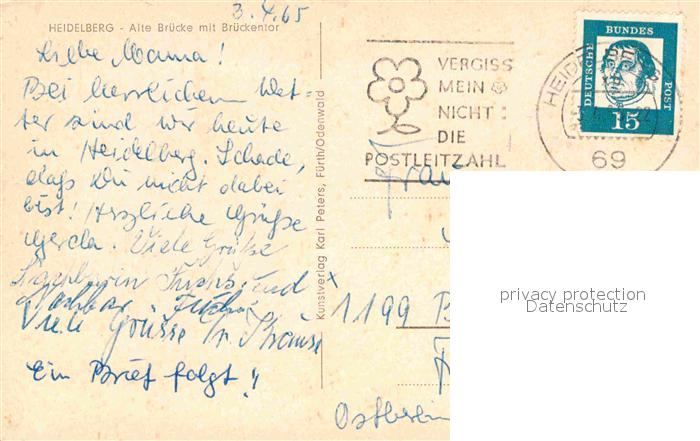 3.4.65
HEIDELBERG - Alte Brücke mit Brückentor
Liebe Mama!
Bei herrlichem Wet-
ter sind wir heute
in Heidelberg. Schade,
daß Du nicht dabei
bist! Herzliche Grüße
Gerda. Viele Grüße
Fuchs und
Nachbar
Viele Grüsse Fr. Krause
Ein Brief folgt!
Kunstverlag Karl Peters, Fürth/Odenwald
VERGISS
MEIN
NICHT
DIE
POSTLEITZAHL
HEIDELBERG
69
DEUTSCHE BUNDES POST
15
Frau
1199 B
Ostberlin
privacy protection
Datenschutz